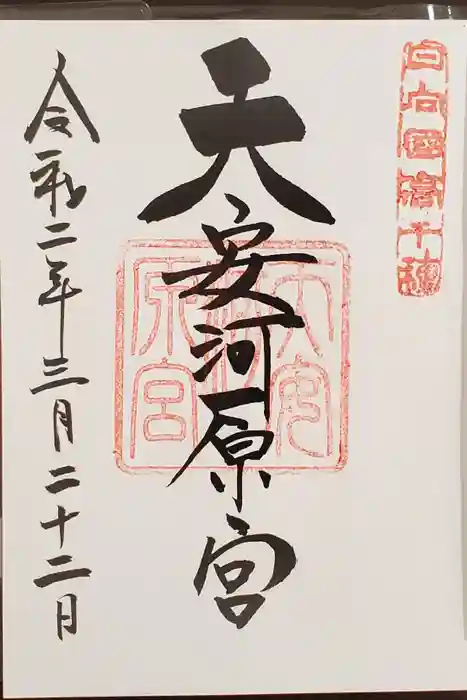 日向國高千穂
天安河原宮
天安河原宮
令和二年三月二十二日